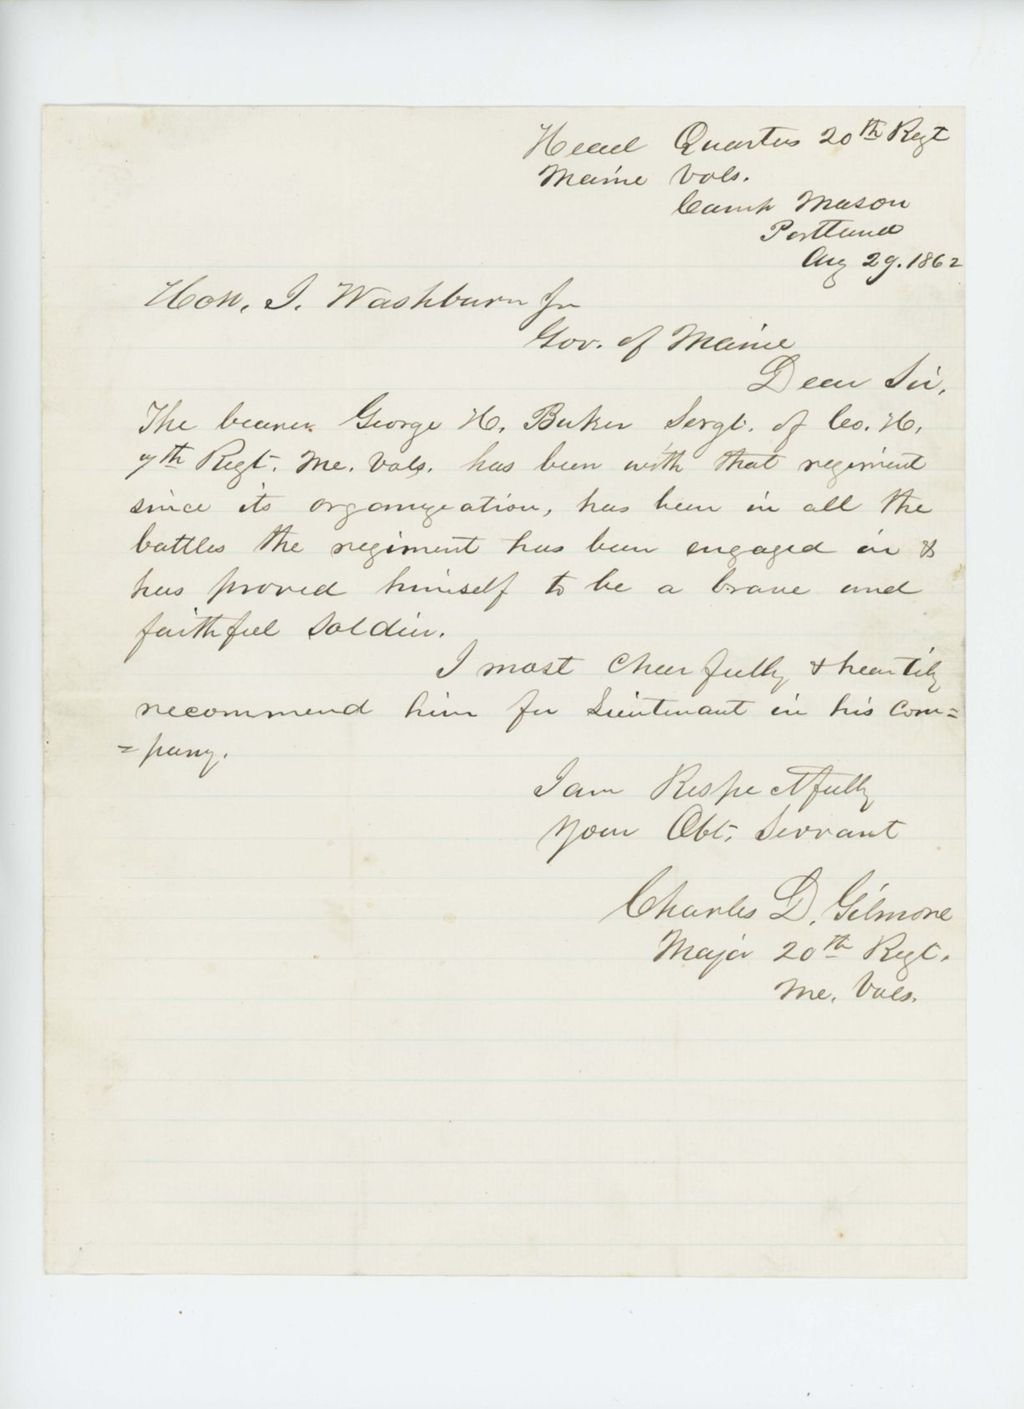 Head Quarters 20th Regt
Maine Vols.
Camp Mason
Portland
Aug 29. 1862
Hon. I. Washburn Jr
Gov. of Maine
Dear Sir,
The bearer George H. Buker Sergt. of Co. H,
7th Regt. Me. Vols. has been with that regiment
since its organization, has been in all the
battles the regiment has been engaged in &
has proved himself to be a brave and
faithful soldier.
I most cheerfully & heartily
recommend him for Lieutenant in his com=
=pany.
I am Respectfully
Your Obt. Servant
Charles D. Gilmore
Major 20th Regt.
Me. Vols.